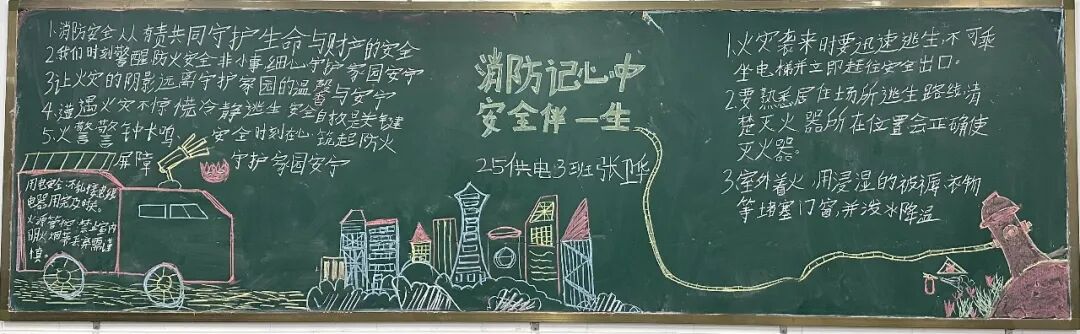 1.消防安全从有责共同守护生命与财产的安全
2我们时刻警醒防火安全非小事细心守护家园安宁
3让火灾的阴影远离守护家园的温馨与安宁
4.遭遇火灾不惊慌冷静逃生安全自救是关键
5.火警警钟长鸣，安全时刻在心筑起防火
屏障 守护家园安宁
用电安全,不乱接
电器用完及时关。
火源管控 禁止室内
明火烟蒂丢弃需谨
慎。
消防记心中
安全伴一生
25供电3班张
1.火灾袭来时要迅速逃生,不可乘
坐电梯并立即赶往安全出口。
2.要熟悉居住场所逃生路线清
楚灭火器所在位置会正确使
灭火器。
3.室外着火,用浸湿的被褥、衣物
等堵塞门窗,并泼水降温